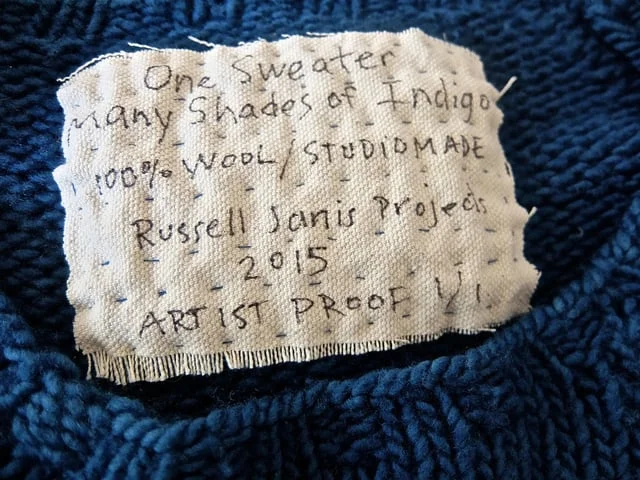 One Sweater
Many Shades of Indigo
100% WOOL/STUDIOMADE
Russell Janis Projects
2015
ARTIST PROOF 1/1.